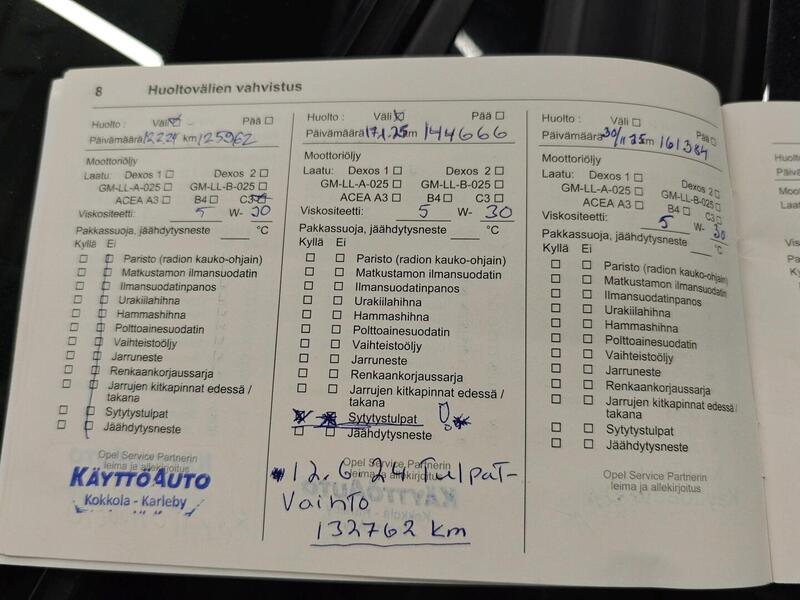 8 Huoltovälien vahvistus
Huolto : Väli Pää
Päivämäärä 12.2.24 km 125962
Moottoriöljy
Laatu: Dexos 1 Dexos 2
GM-LL-A-025 GM-LL-B-025
ACEA A3 B4 C3
Viskositeetti: 5 W- 30
Pakkassuoja, jäähdytysneste °C
Kyllä Ei
Paristo (radion kauko-ohjain)
Matkustamon ilmansuodatin
Ilmansuodatinpanos
Urakiilahihna
Hammashihna
Polttoainesuodatin
Vaihteistoöljy
Jarruneste
Renkaankorjaussarja
Jarrujen kitkapinnat edessä /
takana
Sytytystulpat
Jäähdytysneste
Opel Service Partnerin
leima ja allekirjoitus
KÄYTTÖAUTO
Kokkola - Karleby
Huolto : Väli Pää
Päivämäärä 17.1.25 km 144666
Moottoriöljy
Laatu: Dexos 1 Dexos 2
GM-LL-A-025 GM-LL-B-025
ACEA A3 B4 C3
Viskositeetti: 5 W- 30
Pakkassuoja, jäähdytysneste °C
Kyllä Ei
Paristo (radion kauko-ohjain)
Matkustamon ilmansuodatin
Ilmansuodatinpanos
Urakiilahihna
Hammashihna
Polttoainesuodatin
Vaihteistoöljy
Jarruneste
Renkaankorjaussarja
Jarrujen kitkapinnat edessä /
takana
Sytytystulpat
Jäähdytysneste
Opel Service Partnerin
leima ja allekirjoitus
* 12.6.24 Tulpat-
Vaihto
132762 km
Huolto : Väli Pää
Päivämäärä 30/11 25 km 161384
Moottoriöljy
Laatu: Dexos 1 Dexos 2
GM-LL-A-025 GM-LL-B-025
ACEA A3 B4 C3
Viskositeetti: 5 W- 30
Pakkassuoja, jäähdytysneste °C
Kyllä Ei
Paristo (radion kauko-ohjain)
Matkustamon ilmansuodatin
Ilmansuodatinpanos
Urakiilahihna
Hammashihna
Polttoainesuodatin
Vaihteistoöljy
Jarruneste
Renkaankorjaussarja
Jarrujen kitkapinnat edessä /
takana
Sytytystulpat
Jäähdytysneste
Opel Service Partnerin
leima ja allekirjoitus